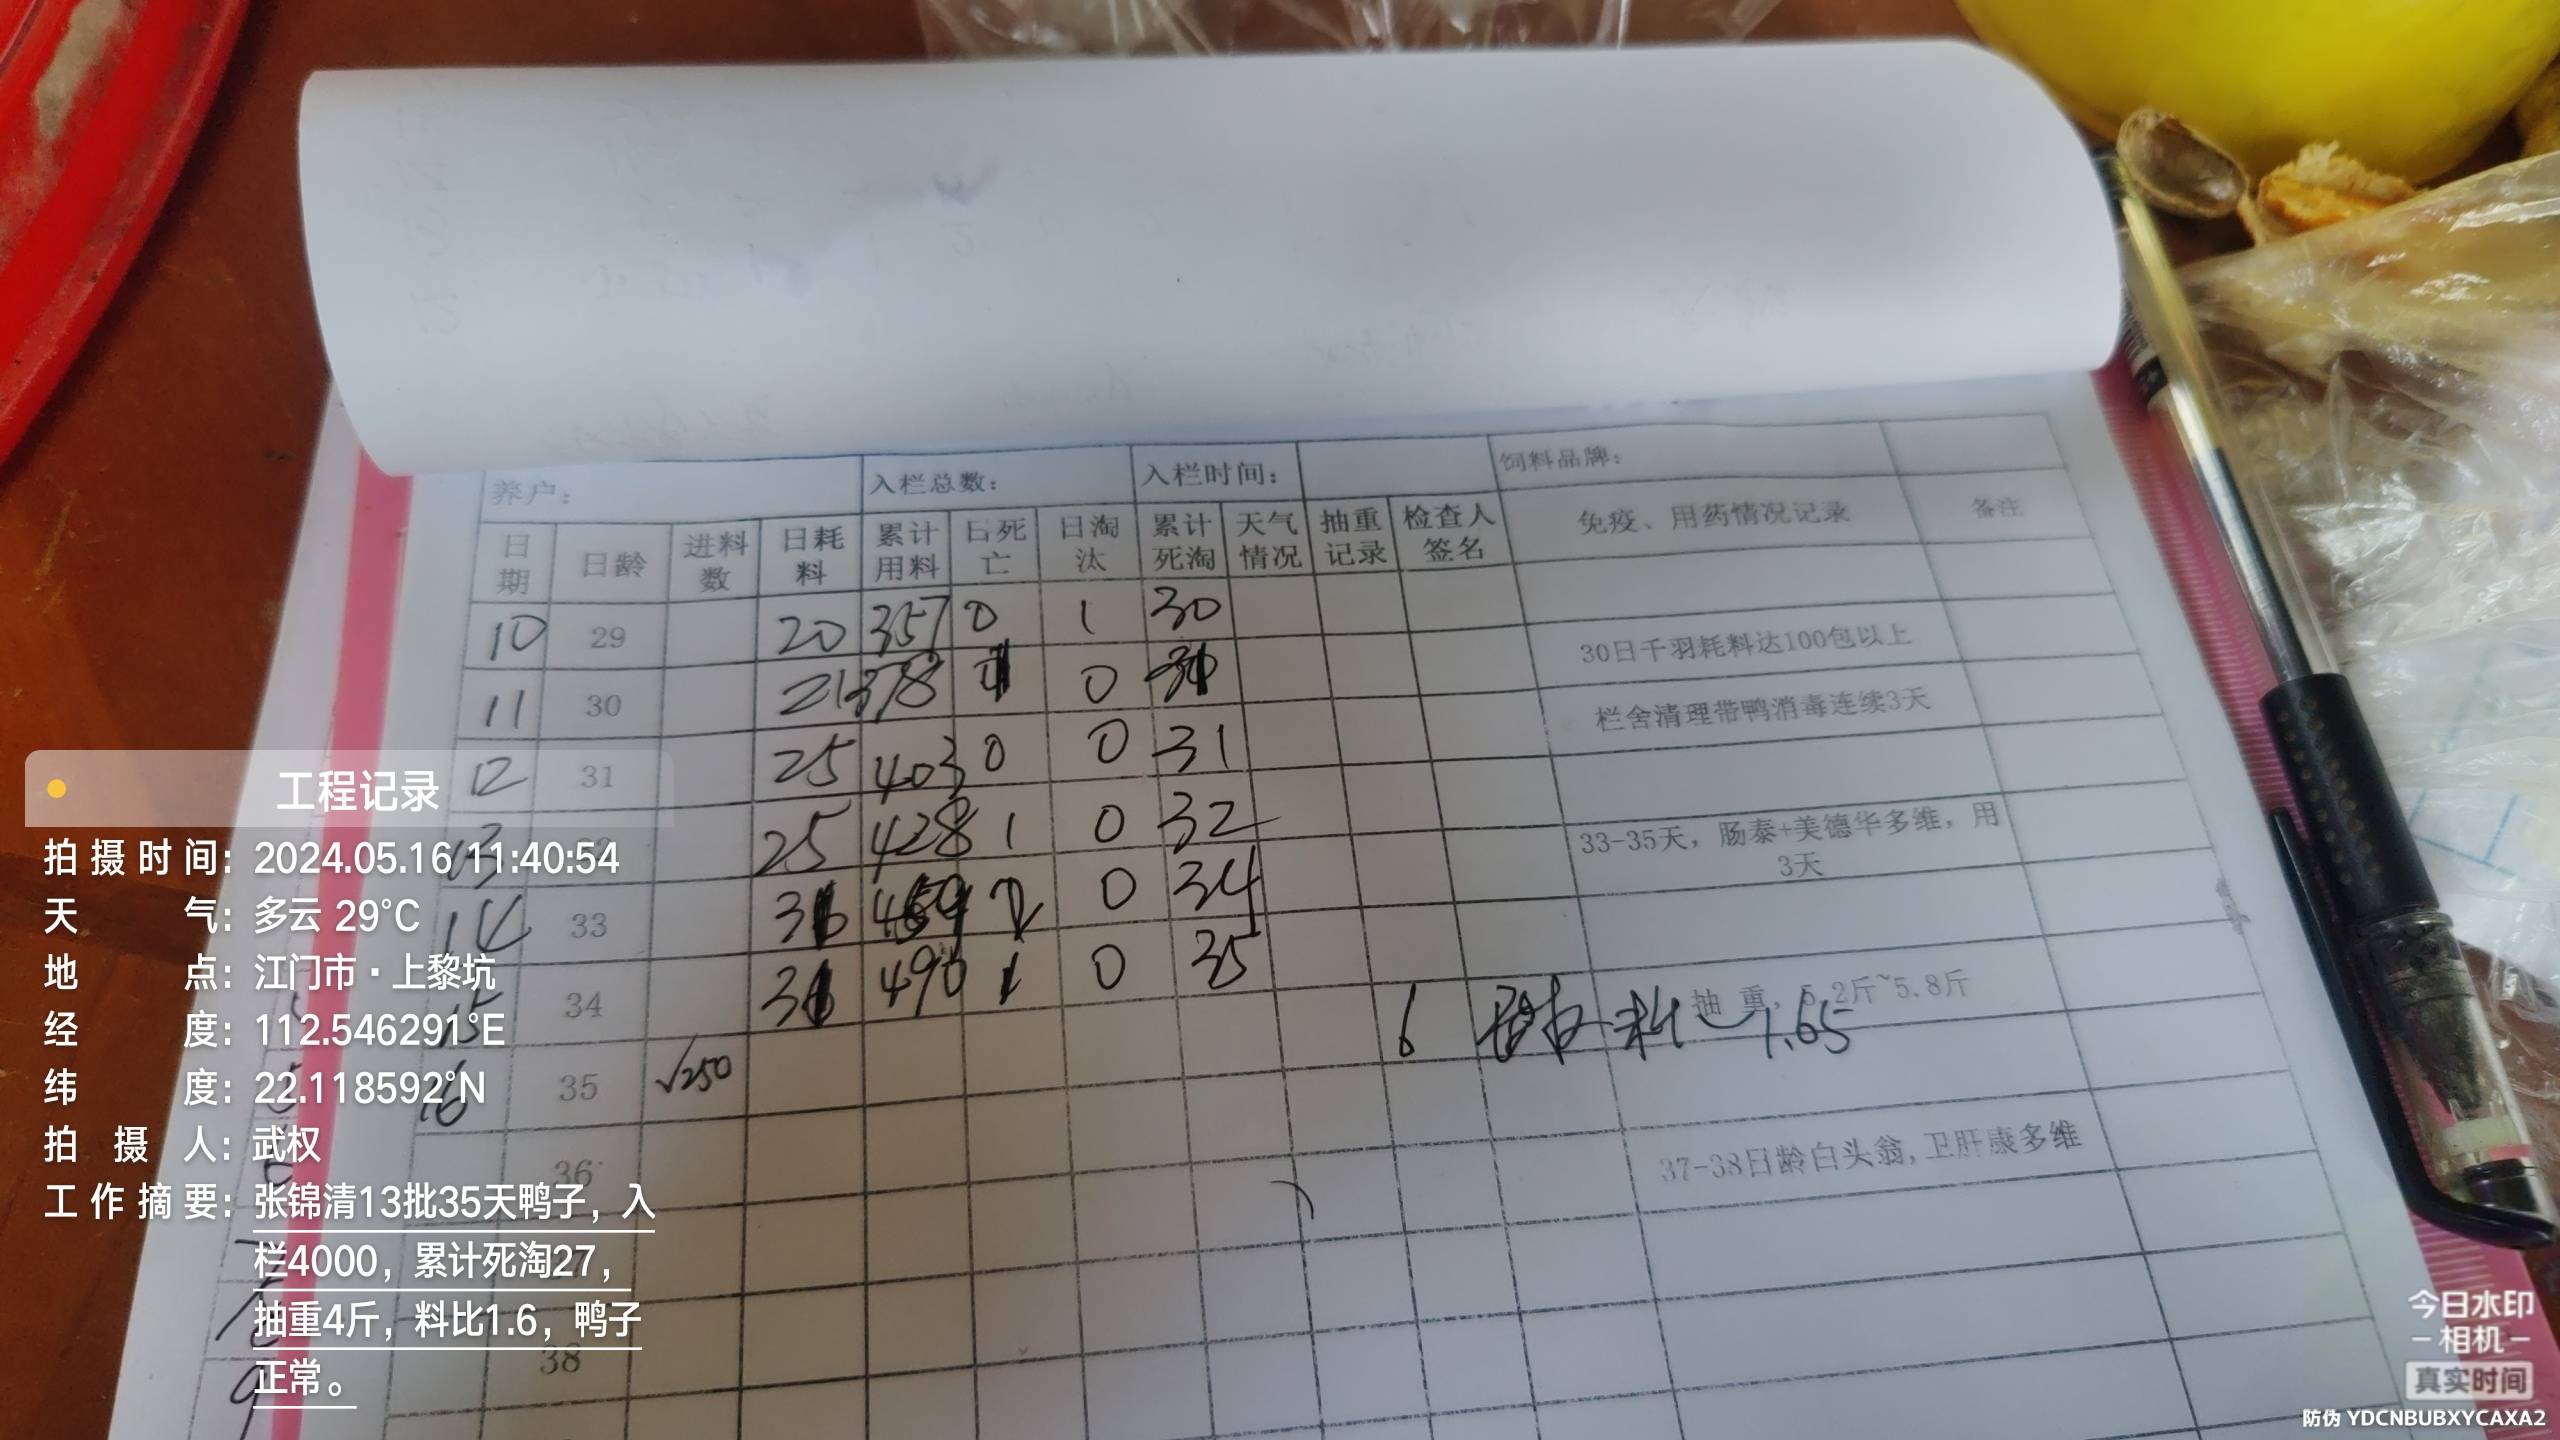 养户： 入栏总数： 入栏时间： 饲料品牌：
日期 日龄 进料数 日耗料 累计用料 日死亡 日淘汰 累计死淘 天气情况 抽重记录 检查人签名 免疫、用药情况记录 备注
10 29 20 357 0 1 30
11 30 21 378 1 0 31 30日千羽耗料达100包以上
12 31 25 403 0 0 31 栏舍清理带鸭消毒连续3天
13 25 428 1 0 32
14 33 31 459 2 0 34 33-35天，肠泰+美德华多维，用3天
15 34 31 490 1 0 35
抽 重，5.2斤~5.8斤
料 1.65
16 35 √250
36 37-38日龄白头翁,卫肝康多维
38
工程记录
拍摄时间：2024.05.16 11:40:54
天气：多云 29°C
地点：江门市·上黎坑
经度：112.546291°E
纬度：22.118592°N
拍摄人：武权
工作摘要：张锦清13批35天鸭子，入
栏4000，累计死淘27，
抽重4斤，料比1.6，鸭子
正常。
今日水印
-相机-
真实时间
防伪 YDCNBUBXYCAXA2